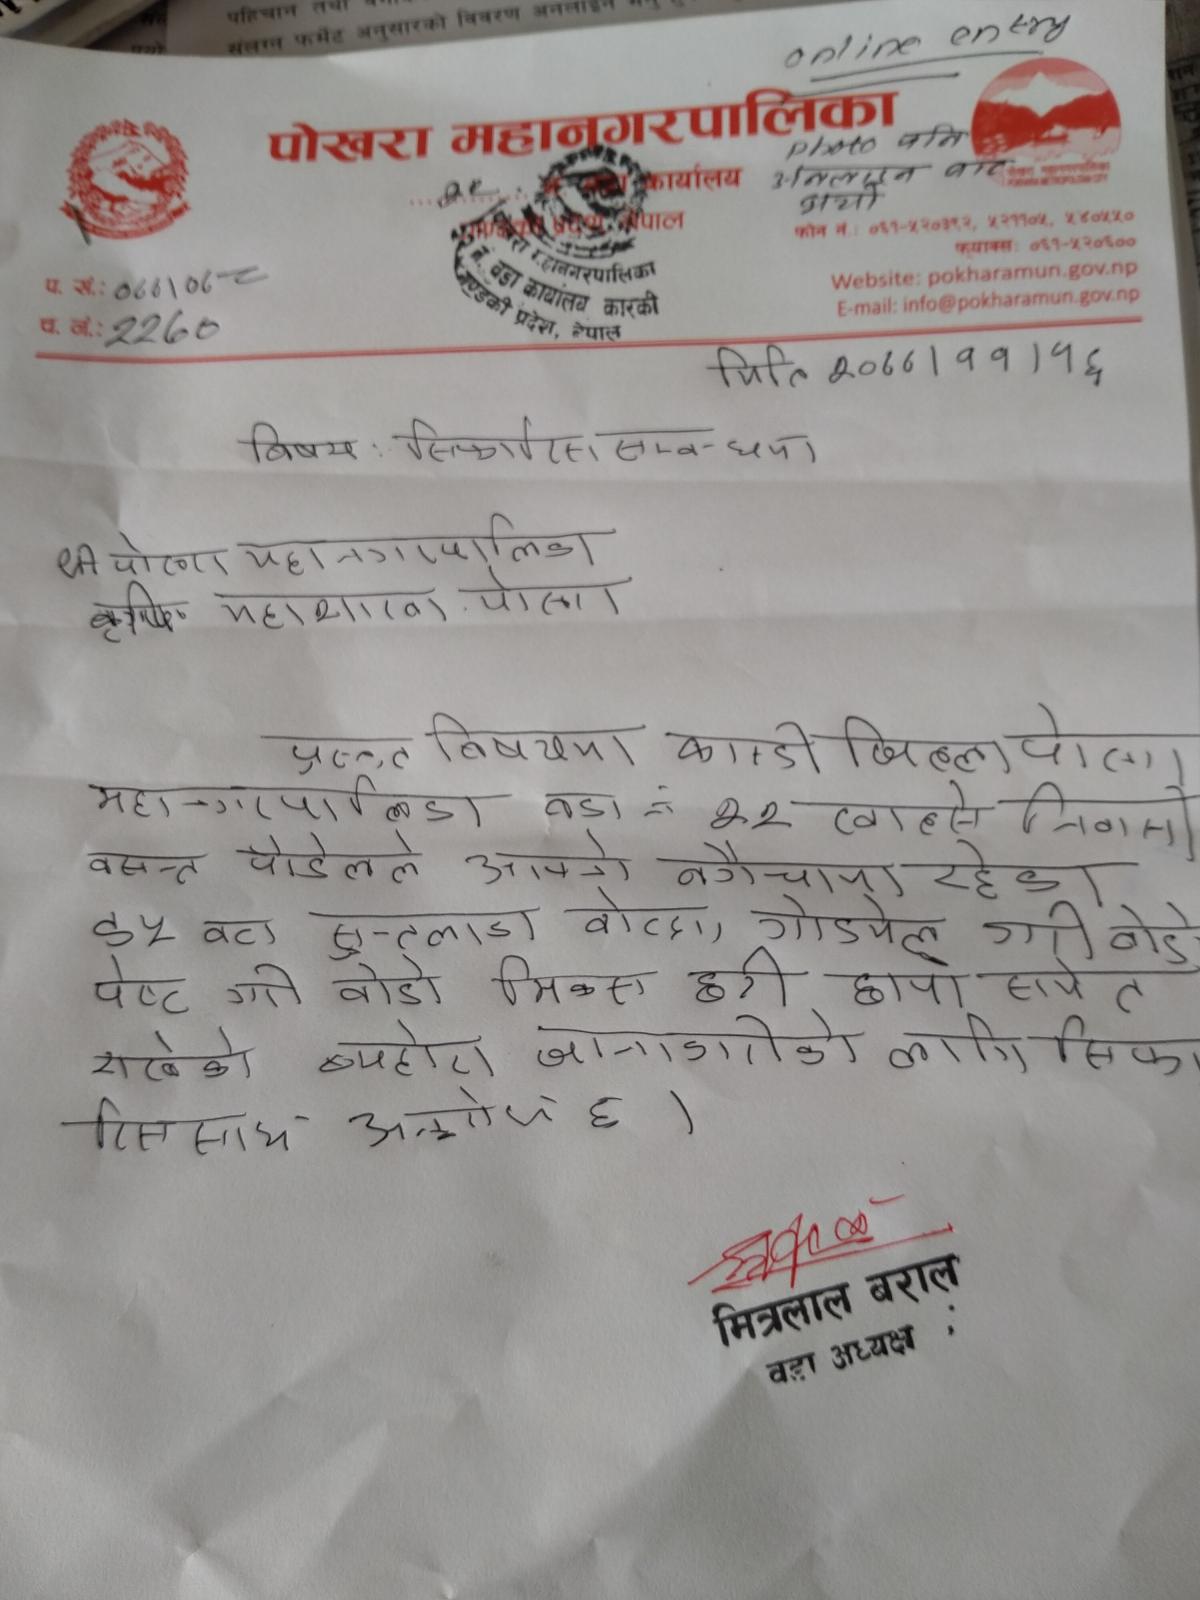 पहिचान तथा
संलग्न फर्मेट अनुसारको विवरण अनलाइन
online entry
पोखरा महानगरपालिका
photo पनि
२२ नं. वडा कार्यालय
अनलाइन बाट
गण्डकी प्रदेश, नेपाल
फोन नं.: ०६१-५२०३९२, ५२११०५, ५४०५५०
फ्याक्स: ०६१-५२०६००
Website: pokharamun.gov.np
E-mail: info@pokharamun.gov.np
पोखरा महानगरपालिका
नं. वडा कार्यालय कास्की
गण्डकी प्रदेश, नेपाल
प. सं.: ०७७/०७८
च. नं.: 2260
मिति २०७७/११/१६
विषय: सिफारिस सम्बन्धमा
श्री पोखरा महानगरपालिका
कृषि महाशाखा पोखरा
प्रस्तुत विषयमा कास्की जिल्ला पोखरा
महानगरपालिका वडा नं २२ निवासी
वसन्त पौडेलले आफ्नो बगैचामा रहेका
८५ वटा सुन्तलाका बोटमा, गोडमेल गरी बोर्डो
पेष्ट गरी बोर्डो मिक्स छरी छापो समेत
राखेको ब्यहोरा जानाकारीको लागि सिफा
रिस साथ अनुरोध छ ।
मित्रलाल बराल
वडा अध्यक्ष